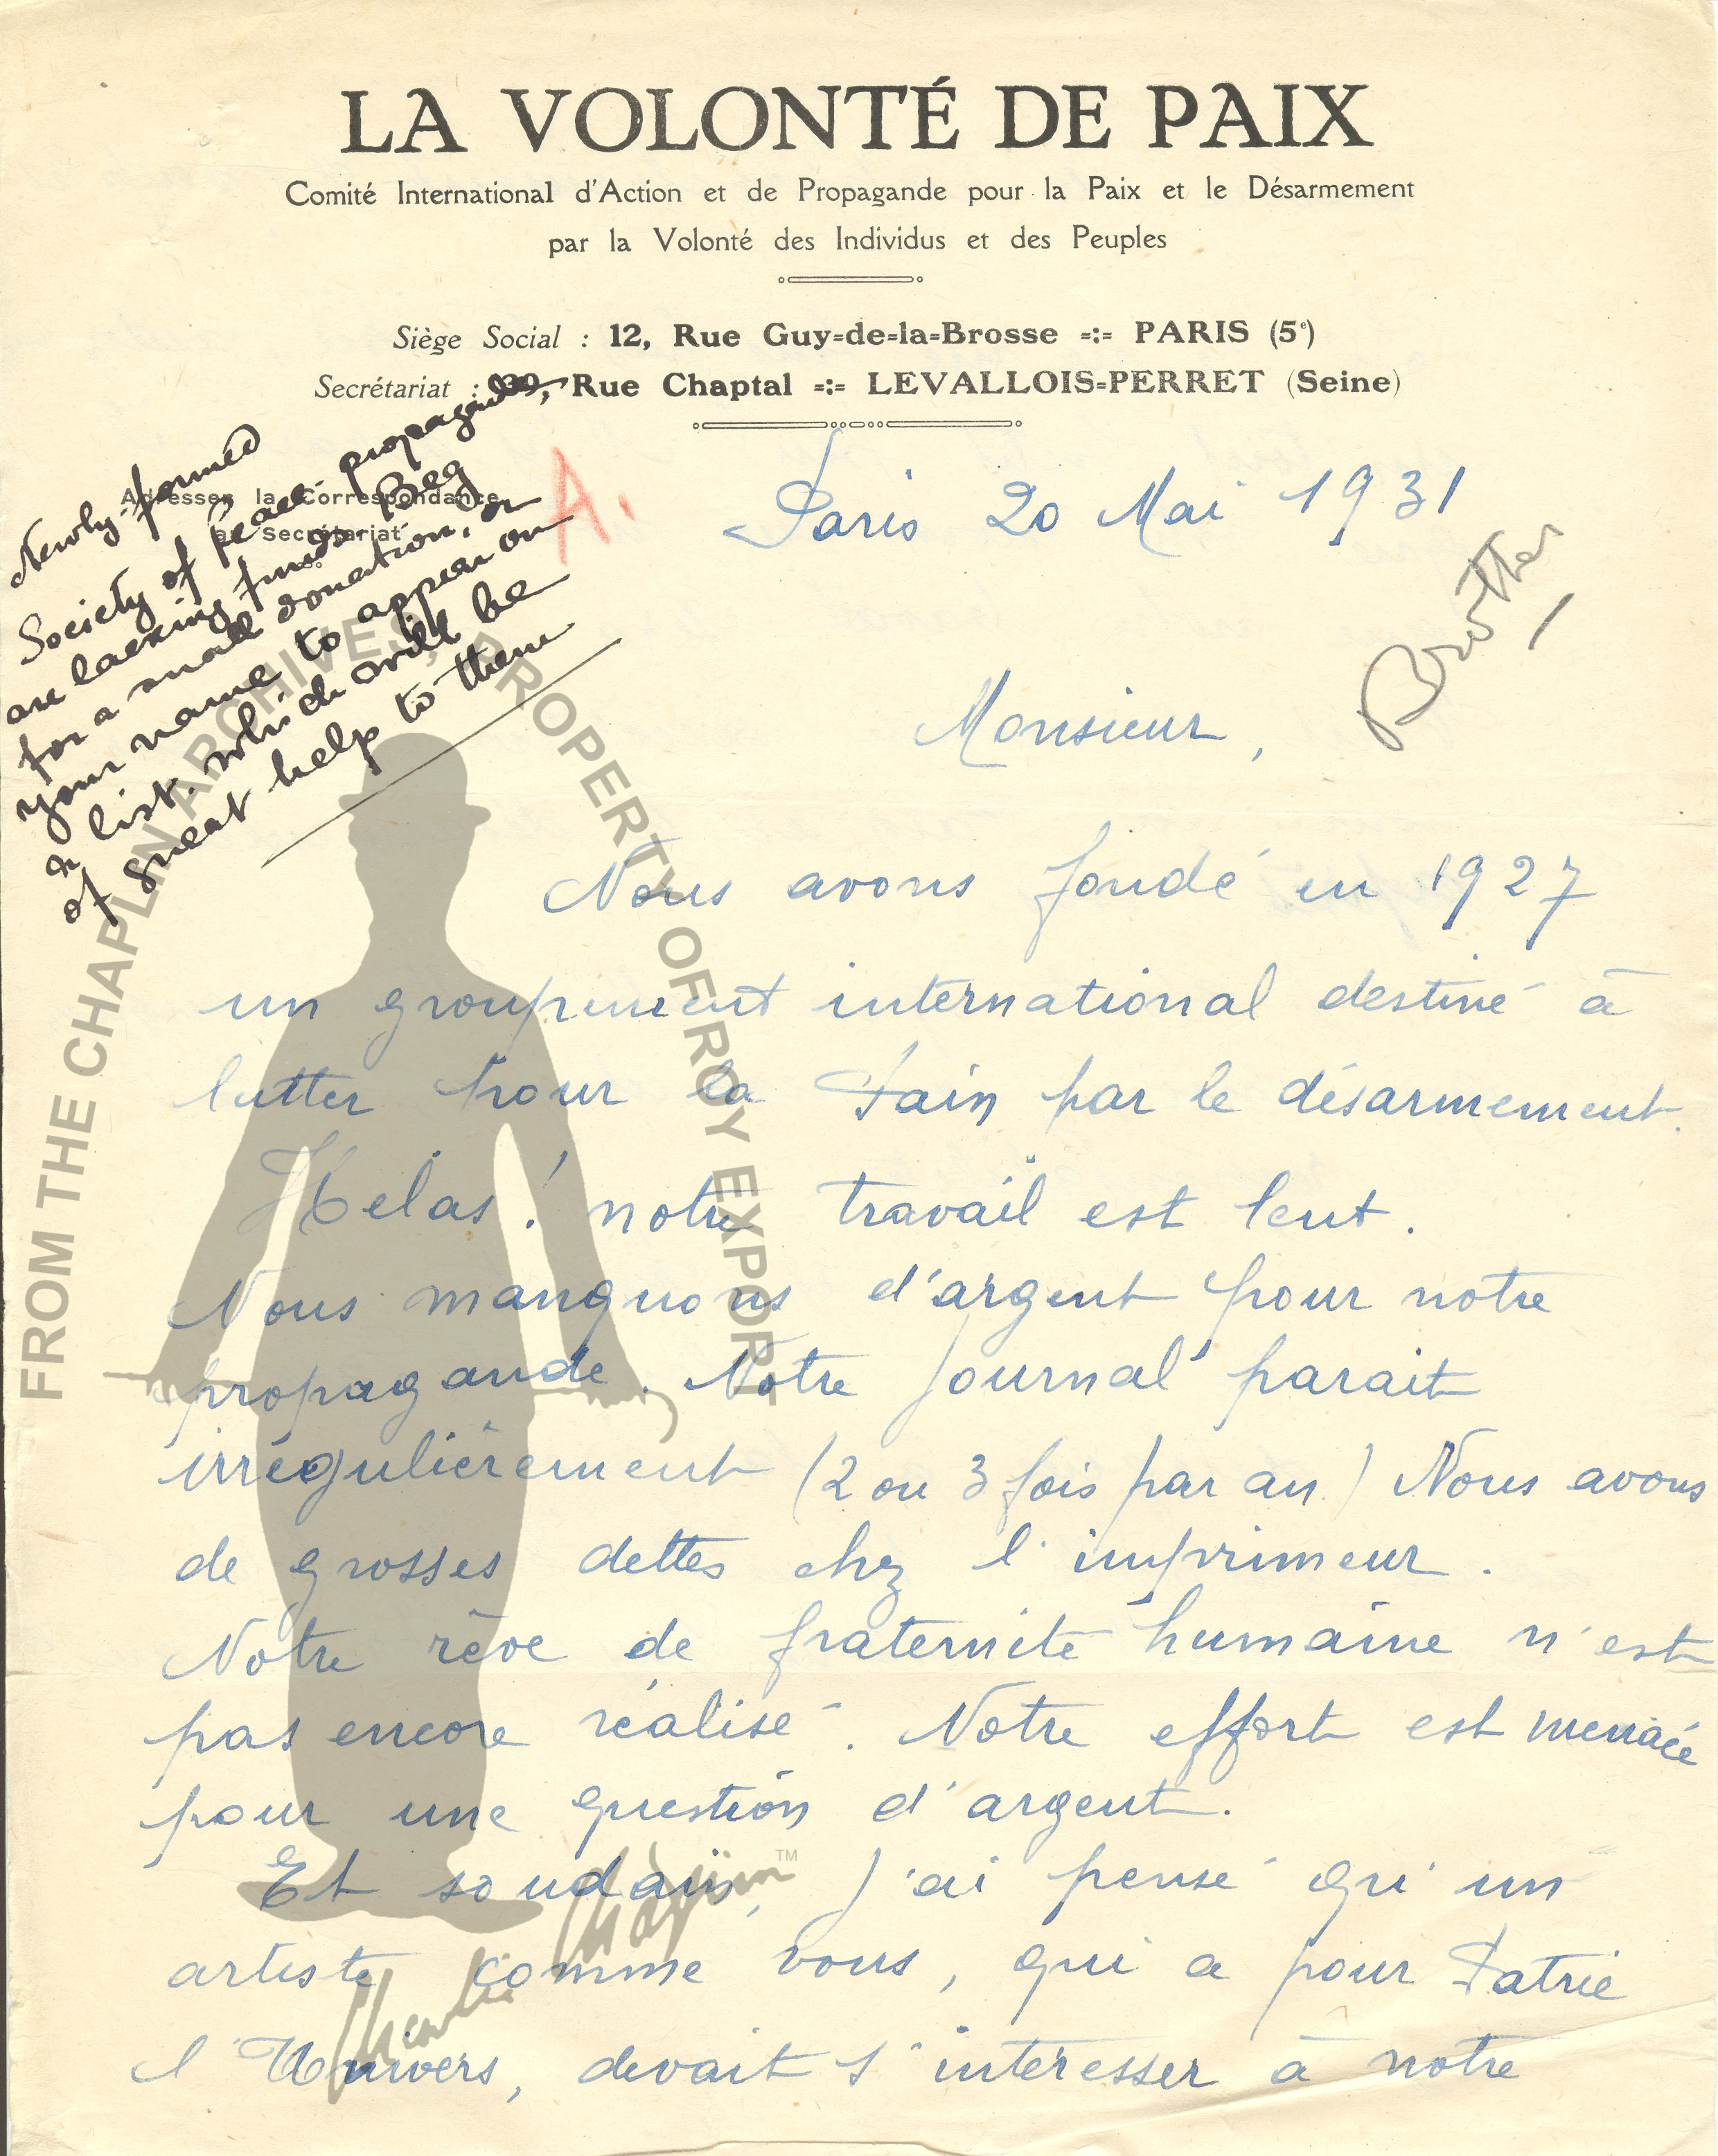 LA VOLONTÉ DE PAIX
Comité International d'Action et de Propagande pour la Paix et le Désarmement
par la Volonté des Individus et des Peuples
Siège Social : 12, Rue Guy-de-la-Brosse -:- PARIS (5e)
Secrétariat : 39, Rue Chaptal -:- LEVALLOIS-PERRET (Seine)
Adresser la Correspondance
au Secrétariat
Newly-formed
Society of peace propaganda,
are lacking funds. Beg
for a small donation, or
your name to appear on
a list, which will be
of great help to them
A.
Paris 20 Mai 1931
Monsieur,
Nous avons fondé en 1927
un groupement international destiné à
lutter pour la Paix par le désarmement.
Helas ! notre travail est lent.
Nous manquons d'argent pour notre
propagande. Notre journal parait
irrégulièrement (2 ou 3 fois par an) Nous avons
de grosses dettes chez l'imprimeur.
Notre rêve de fraternité humaine n'est
pas encore réalisé. Notre effort est menacé
pour une question d'argent.
Et soudain, j'ai pensé qu'un
artiste comme vous, qui a pour Patrie
l'Univers, devait s'intéresser à notre
FROM THE CHAPLIN ARCHIVES, PROPERTY OF ROY EXPORT
Charlie Chaplin™